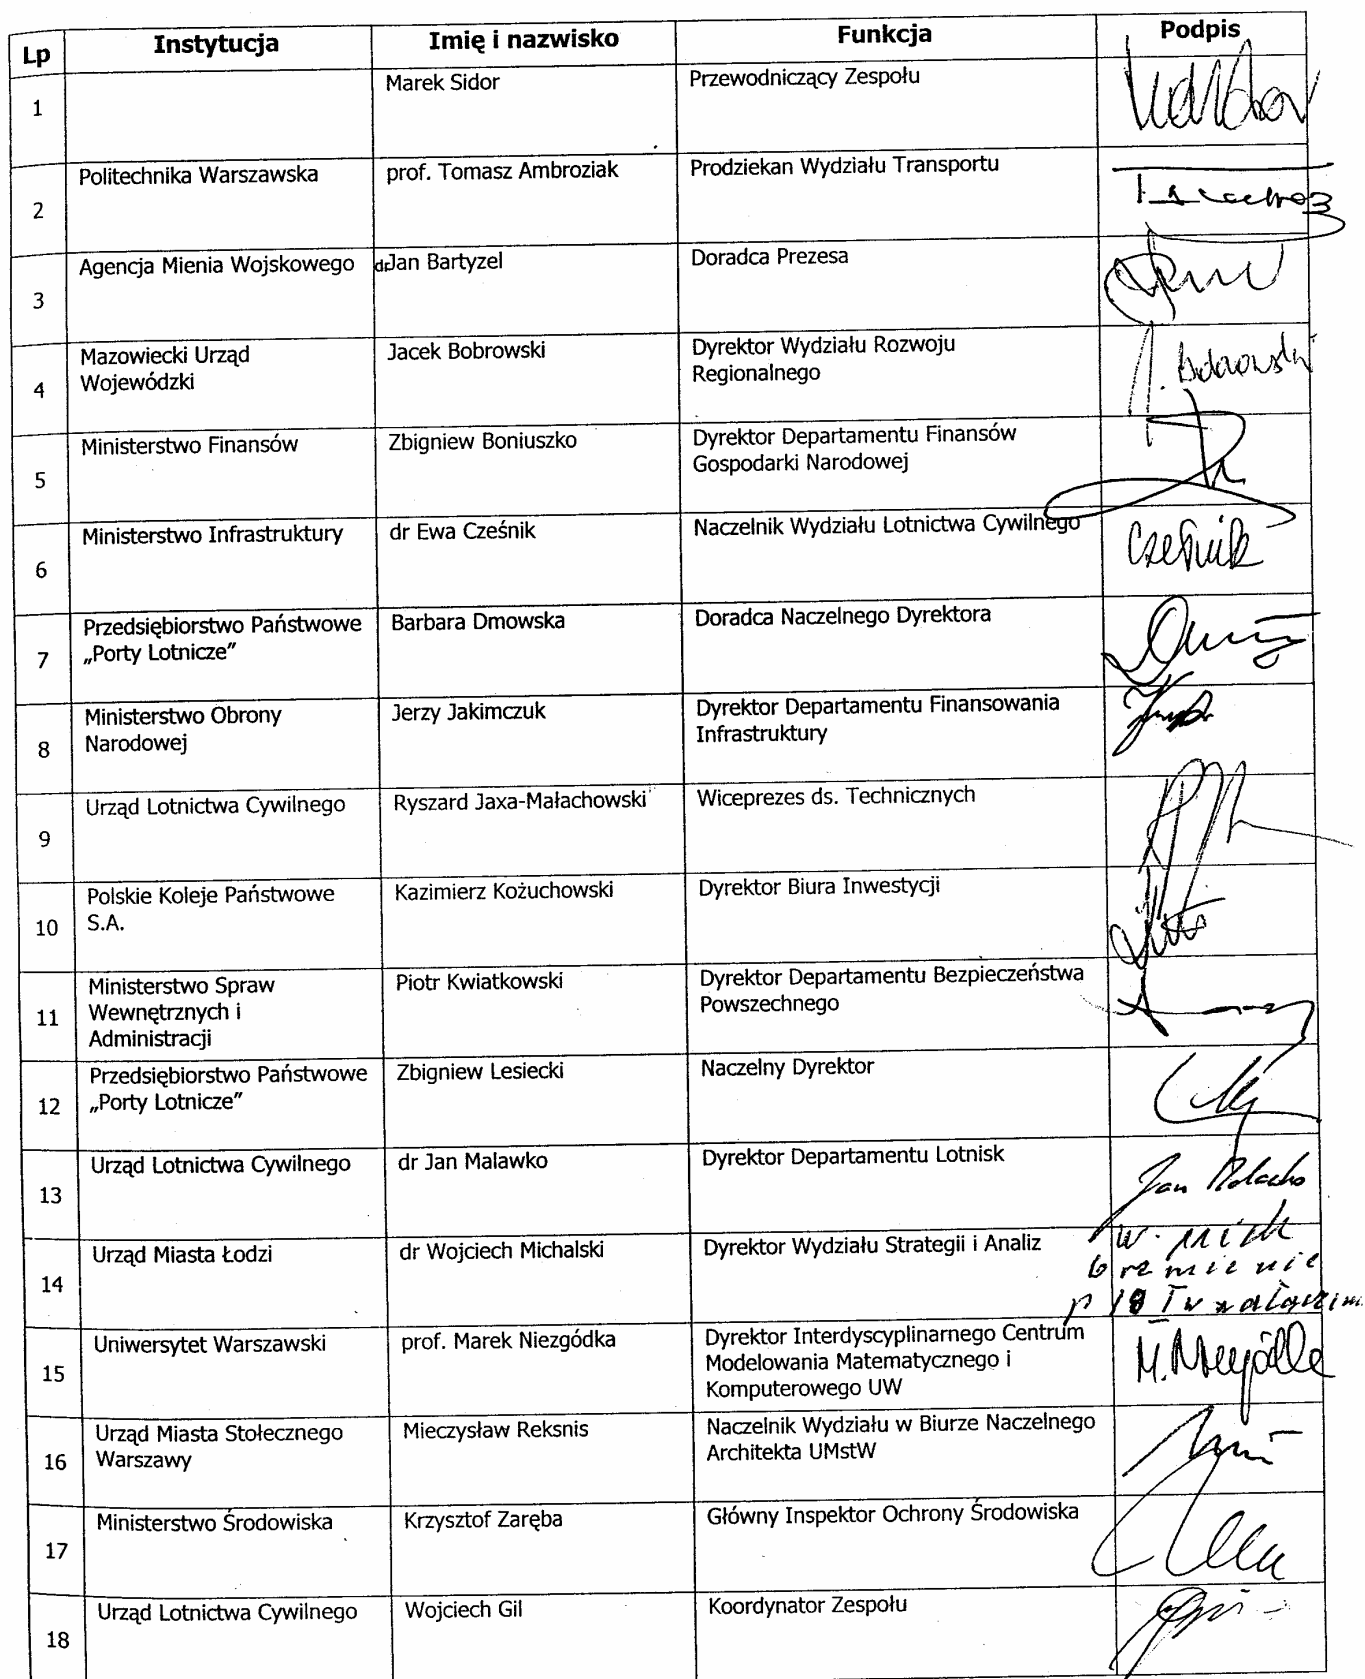 Lp Instytucja Imię i nazwisko Funkcja Podpis
1 Marek Sidor Przewodniczący Zespołu
2 Politechnika Warszawska prof. Tomasz Ambroziak Prodziekan Wydziału Transportu
3 Agencja Mienia Wojskowego dr Jan Bartyzel Doradca Prezesa
4 Mazowiecki Urząd Jacek Bobrowski Dyrektor Wydziału Rozwoju
Wojewódzki Regionalnego
5 Ministerstwo Finansów Zbigniew Boniuszko Dyrektor Departamentu Finansów
Gospodarki Narodowej
6 Ministerstwo Infrastruktury dr Ewa Cześnik Naczelnik Wydziału Lotnictwa Cywilnego Cześnik
7 Przedsiębiorstwo Państwowe Barbara Dmowska Doradca Naczelnego Dyrektora
„Porty Lotnicze”
8 Ministerstwo Obrony Jerzy Jakimczuk Dyrektor Departamentu Finansowania
Narodowej Infrastruktury
9 Urząd Lotnictwa Cywilnego Ryszard Jaxa-Małachowski Wiceprezes ds. Technicznych
10 Polskie Koleje Państwowe Kazimierz Kożuchowski Dyrektor Biura Inwestycji
S.A.
11 Ministerstwo Spraw Piotr Kwiatkowski Dyrektor Departamentu Bezpieczeństwa
Wewnętrznych i Powszechnego
Administracji
12 Przedsiębiorstwo Państwowe Zbigniew Lesiecki Naczelny Dyrektor
„Porty Lotnicze”
13 Urząd Lotnictwa Cywilnego dr Jan Malawko Dyrektor Departamentu Lotnisk Jan
14 Urząd Miasta Łodzi dr Wojciech Michalski Dyrektor Wydziału Strategii i Analiz W. Mich
brzmienie
p 18 w
15 Uniwersytet Warszawski prof. Marek Niezgódka Dyrektor Interdyscyplinarnego Centrum M. Niezgódka
Modelowania Matematycznego i
Komputerowego UW
16 Urząd Miasta Stołecznego Mieczysław Reksnis Naczelnik Wydziału w Biurze Naczelnego
Warszawy Architekta UMstW
17 Ministerstwo Środowiska Krzysztof Zaręba Główny Inspektor Ochrony Środowiska
18 Urząd Lotnictwa Cywilnego Wojciech Gil Koordynator Zespołu